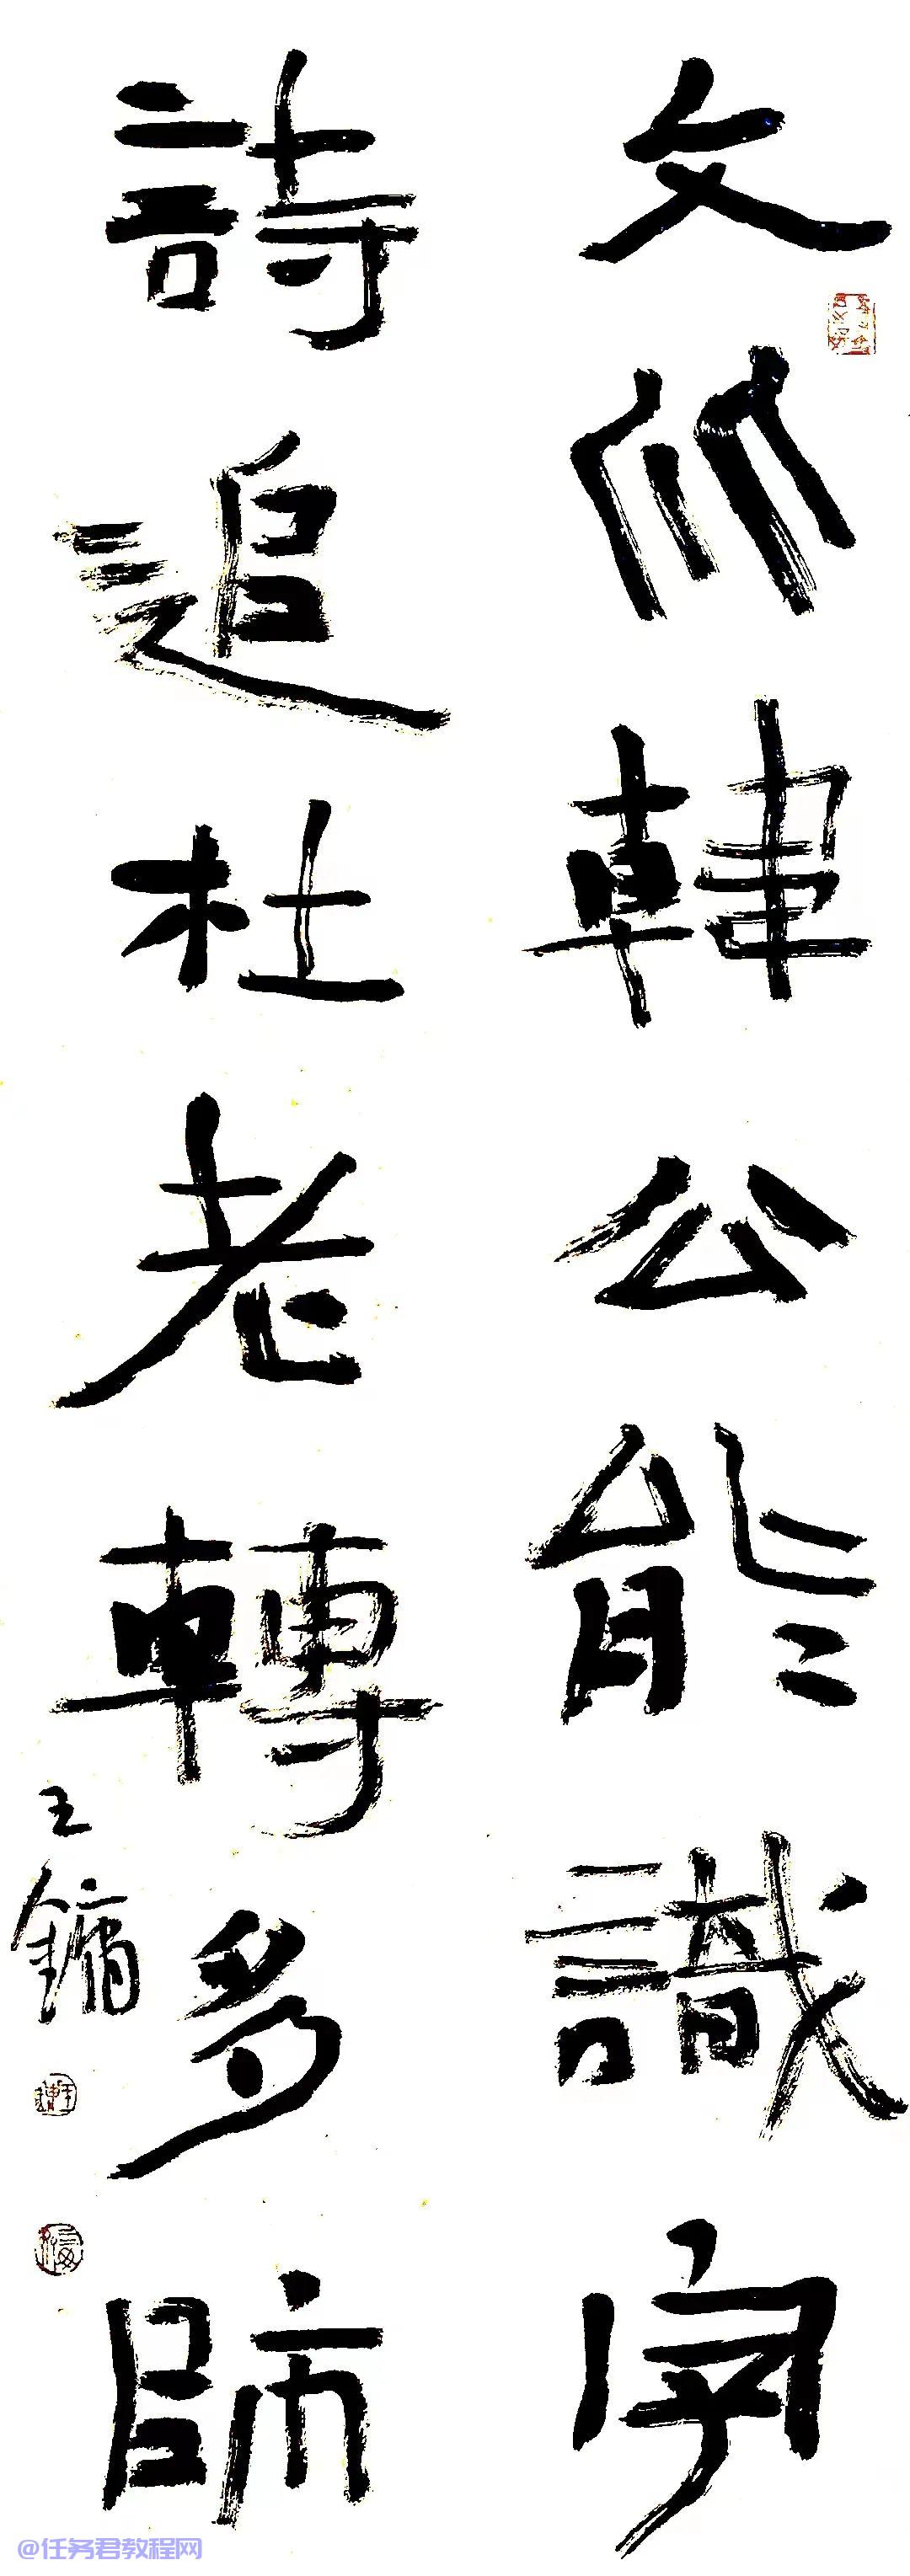 文从韓公能識字
詩追杜老轉多師
王鏞
@任务君教程网